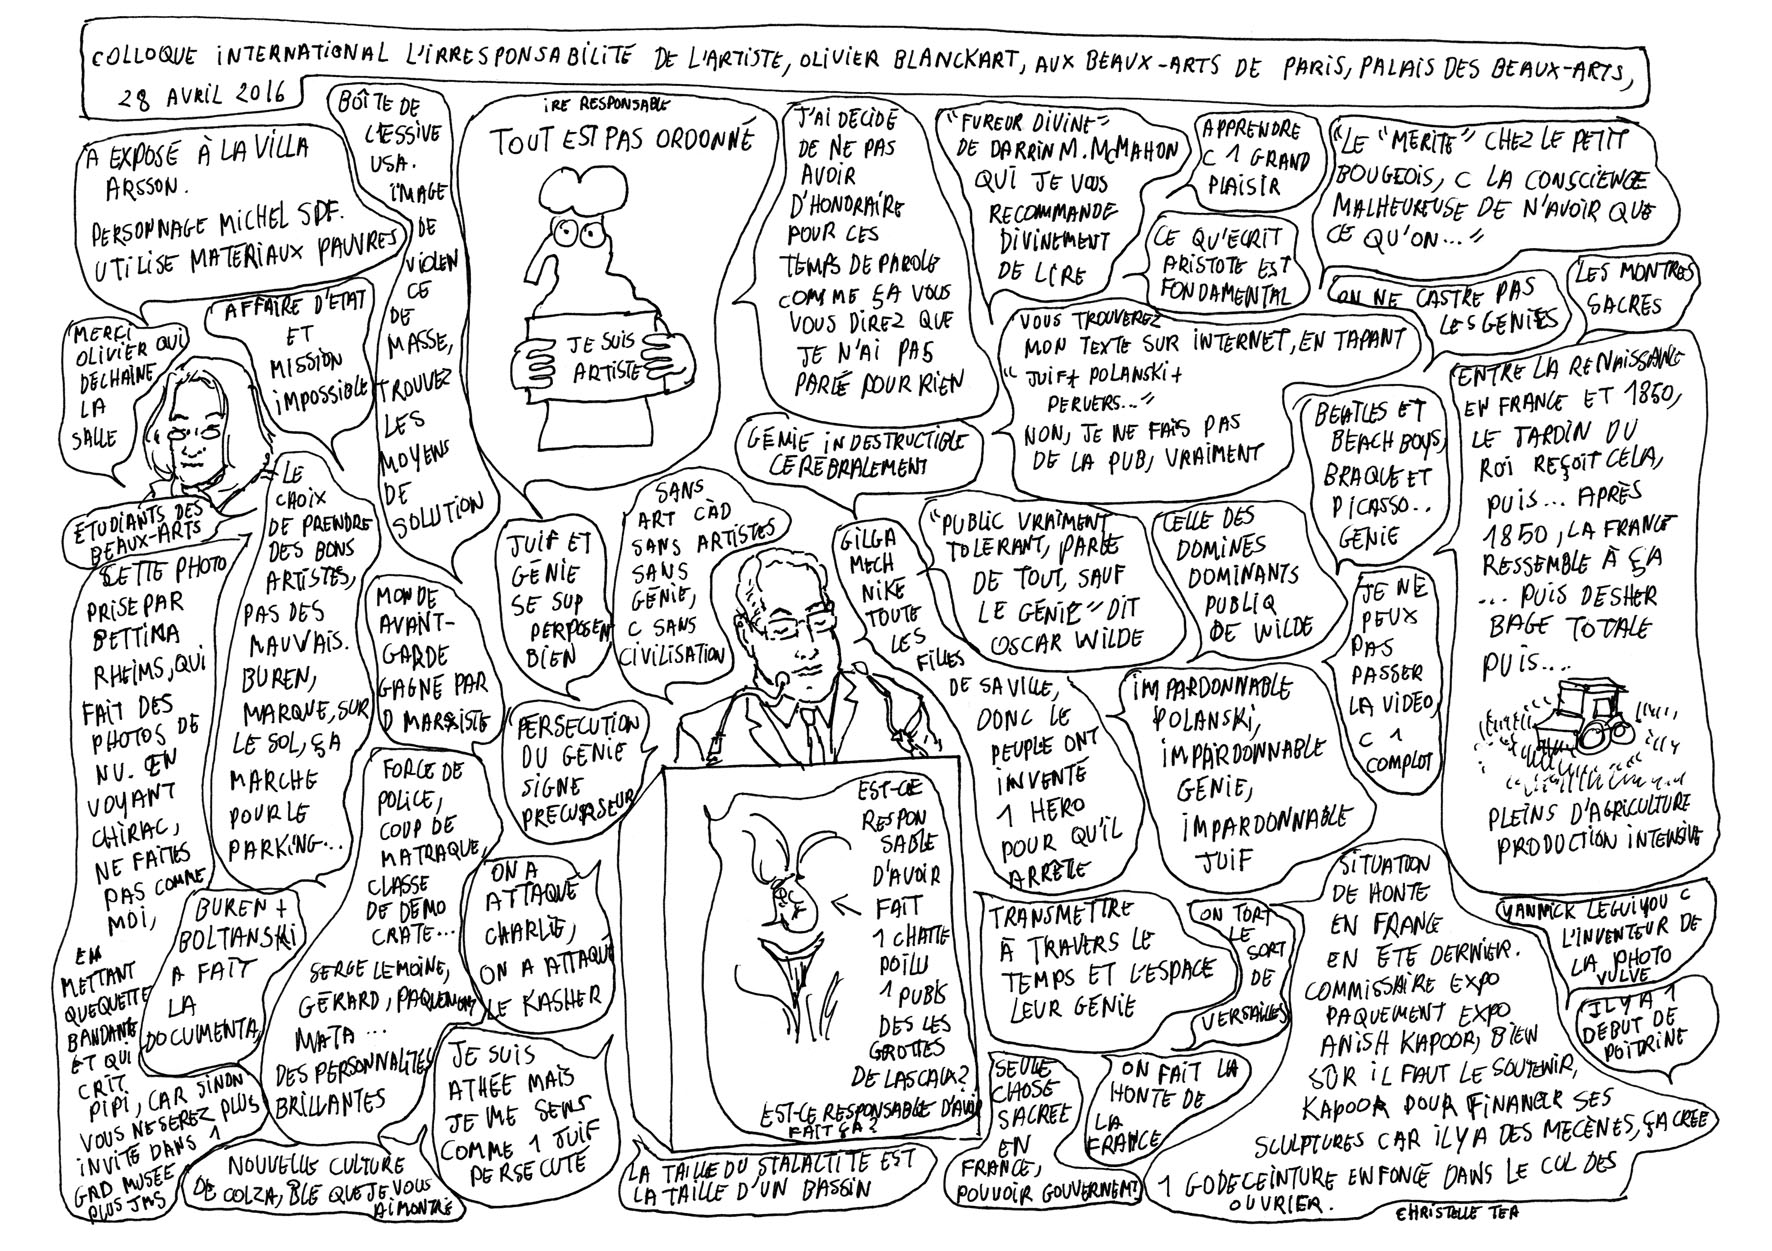 COLLOQUE INTERNATIONAL L'IRRESPONSABILITÉ DE L'ARTISTE, OLIVIER BLANCKART, AUX BEAUX-ARTS DE PARIS, PALAIS DES BEAUX-ARTS,
28 AVRIL 2016
A EXPOSÉ À LA VILLA
ARSSON.
PERSONNAGE MICHEL SDF.
UTILISE MATERIAUX PAUVRES
BOÎTE DE
L'ESSIVE
USA.
IMAGE
DE
VIOLEN
CE
DE
MASSE,
TROUVEZ
LES
MOYENS
DE
SOLUTION
IRE RESPONSABLE
TOUT EST PAS ORDONNÉ
JE SUIS
ARTISTE
J'AI DÉCIDÉ
DE NE PAS
AVOIR
D'HONORAIRE
POUR CES
TEMPS DE PAROLE
COMME ÇA VOUS
VOUS DIREZ QUE
JE N'AI PAS
PARLÉ POUR RIEN
"FUREUR DIVINE"
DE DARRIN M. McMAHON
QUI JE VOUS
RECOMMANDE
DIVINEMENT
DE LIRE
APPRENDRE
C 1 GRAND
PLAISIR
CE QU'ECRIT
ARISTOTE EST
FONDAMENTAL
"LE "MERITE" CHEZ LE PETIT
BOUGEOIS, C LA CONSCIENCE
MALHEUREUSE DE N'AVOIR QUE
CE QU'ON..."
ON NE CASTRE PAS
LES GENIES
LES MONTRES
SACRES
MERCI
OLIVIER QUI
DECHAINE
LA
SALLE
AFFAIRE D'ETAT
ET
MISSION
IMPOSSIBLE
ETUDIANTS DES
BEAUX-ARTS
VOUS TROUVEREZ
MON TEXTE SUR INTERNET, EN TAPANT
"JUIF + POLANSKI +
PERVERS..."
NON, JE NE FAIS PAS
DE LA PUB, VRAIMENT
GÉNIE INDESTRUCTIBLE
CEREBRALEMENT
BEATLES ET
BEACH BOYS,
BRAQUE ET
PICASSO..
GENIE
ENTRE LA RENAISSANCE
EN FRANCE ET 1850,
LE JARDIN DU
ROI REÇOIT CELA,
PUIS... APRÈS
1850, LA FRANCE
RESSEMBLE À ÇA
... PUIS DESHER
BAGE TOTALE
PUIS....
PLEINS D'AGRICULTURE
PRODUCTION INTENSIVE
CETTE PHOTO
PRISE PAR
BETTINA
RHEIMS, QUI
FAIT DES
PHOTOS DE
NU. EN
VOYANT
CHIRAC,
NE FAITES
PAS COMME
MOI,
EN
METTANT
QUEQUETTE
BANDANTE
ET QUI
CRIT
PIPI, CAR SINON
VOUS NE SEREZ PLUS
INVITE DANS 1
GRD MUSEE
PLUS JMS
LE
CHOIX
DE PRENDRE
DES BONS
ARTISTES,
PAS DES
MAUVAIS.
BUREN,
MARQUE, SUR
LE SOL, ÇA
MARCHE
POUR LE
PARKING...
MONDE
AVANT-
GARDE
GAGNÉ PAR
D MARXISTE
JUIF ET
GÉNIE
SE SUP
PERPOSEN
BIEN
SANS
ART CÀD
SANS ARTISTES
SANS
GÉNIE,
C SANS
CIVILISATION
GILGA
MECH
NIKE
TOUTE
LES
FILLES
DE SA VILLE,
DONC LE
PEUPLE ONT
INVENTÉ
1 HERO
POUR QU'IL
ARRÊTE
"PUBLIC VRAIMENT
TOLERANT, PARLE
DE TOUT, SAUF
LE GÉNIE" DIT
OSCAR WILDE
CELLE DES
DOMINES
DOMINANTS
PUBLIQ
DE WILDE
JE NE
PEUX
PAS
PASSER
LA VIDEO,
C 1
COMPLOT
PERSECUTION
DU GENIE
SIGNE
PRECURSEUR
IMPARDONNABLE
POLANSKI,
IMPARDONNABLE
GENIE,
IMPARDONNABLE
JUIF
FORCE DE
POLICE,
COUP DE
MATRAQUE,
CLASSE
DE DEMO
CRATE...
SERGE LEMOINE,
GÉRARD, PAQUEMENT
MATA ...
DES PERSONNALITES
BRILLANTES
BUREN +
BOLTANSKI
A FAIT
LA
DOCUMENTA,
ON A
ATTAQUÉ
CHARLIE,
ON A ATTAQUÉ
LE KASHER
JE SUIS
ATHÉE MAIS
JE ME SENS
COMME 1 JUIF
PERSECUTÉ
NOUVELLE CULTURE
DE COLZA, BLE QUE JE VOUS
AI MONTRÉ
EST-CE
RESPON
SABLE
D'AVOIR
FAIT
1 CHATTE
POILU
1 PUBIS
DES LES
GROTTES
DE LASCAUX?
EST-CE RESPONSABLE D'AVOIR
FAIT ÇA?
LA TAILLE DU STALACTITE EST
LA TAILLE D'UN BASSIN
TRANSMETTRE
À TRAVERS LE
TEMPS ET L'ESPACE
LEUR GENIE
ON TORT
LE
SORT
DE
VERSAILLES
SEULE
CHOSE
SACREE
EN
FRANCE,
POUVOIR GOUVERNEMENT
ON FAIT LA
HONTE DE
LA
FRANCE
SITUATION
DE HONTE
EN FRANCE
EN ETE DERNIER.
COMMISSAIRE EXPO
PAQUEMENT EXPO
ANISH KAPOOR, BIEN
SÛR IL FAUT LE SOUTENIR,
KAPOOR POUR FINANCER SES
SCULPTURES CAR IL Y A DES MECÈNES, ÇA CREE
1 GODECEINTURE ENFONCE DANS LE CUL DES
OUVRIER.
YANNICK LEGUIYOU C
L'INVENTEUR DE
LA PHOTO
VULVE
IL Y A 1
DEBUT DE
POITRINE
CHRISTELLE TEA